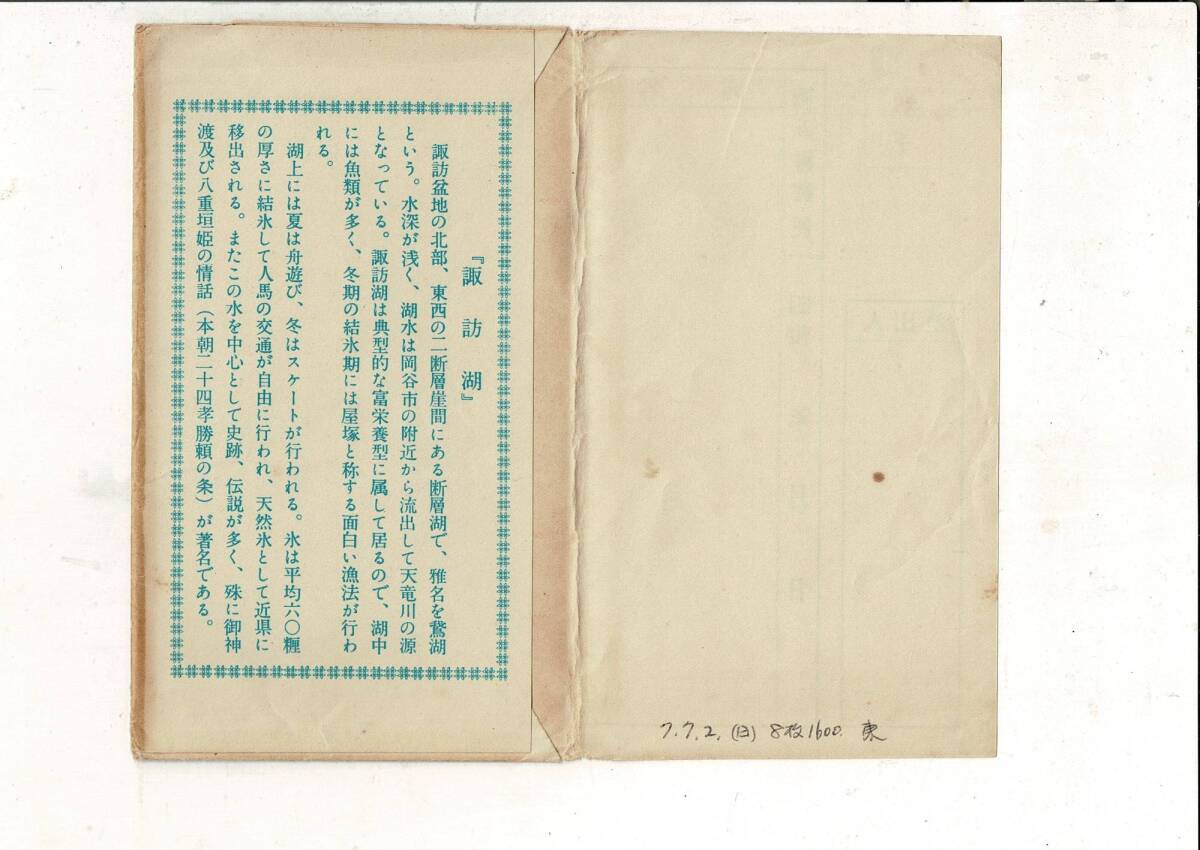 『諏訪湖』
諏訪盆地の北部、東西の二断層崖間にある断層湖で、雅名を鵞湖
という。水深が浅く、湖水は岡谷市の附近から流出して天竜川の源
となっている。諏訪湖は典型的な富栄養型に属して居るので、湖中
には魚類が多く、冬期の結氷期には屋塚と称する面白い漁法が行わ
れる。
湖上には夏は舟遊び、冬はスケートが行われる。氷は平均六〇糎
の厚さに結氷して人馬の交通が自由に行われ、天然氷として近県に
移出される。またこの水を中心として史跡、伝説が多く、殊に御神
渡及び八重垣姫の情話（本朝二十四孝勝頼の条）が著名である。
7.7.2.(日) 8枚1600. 東